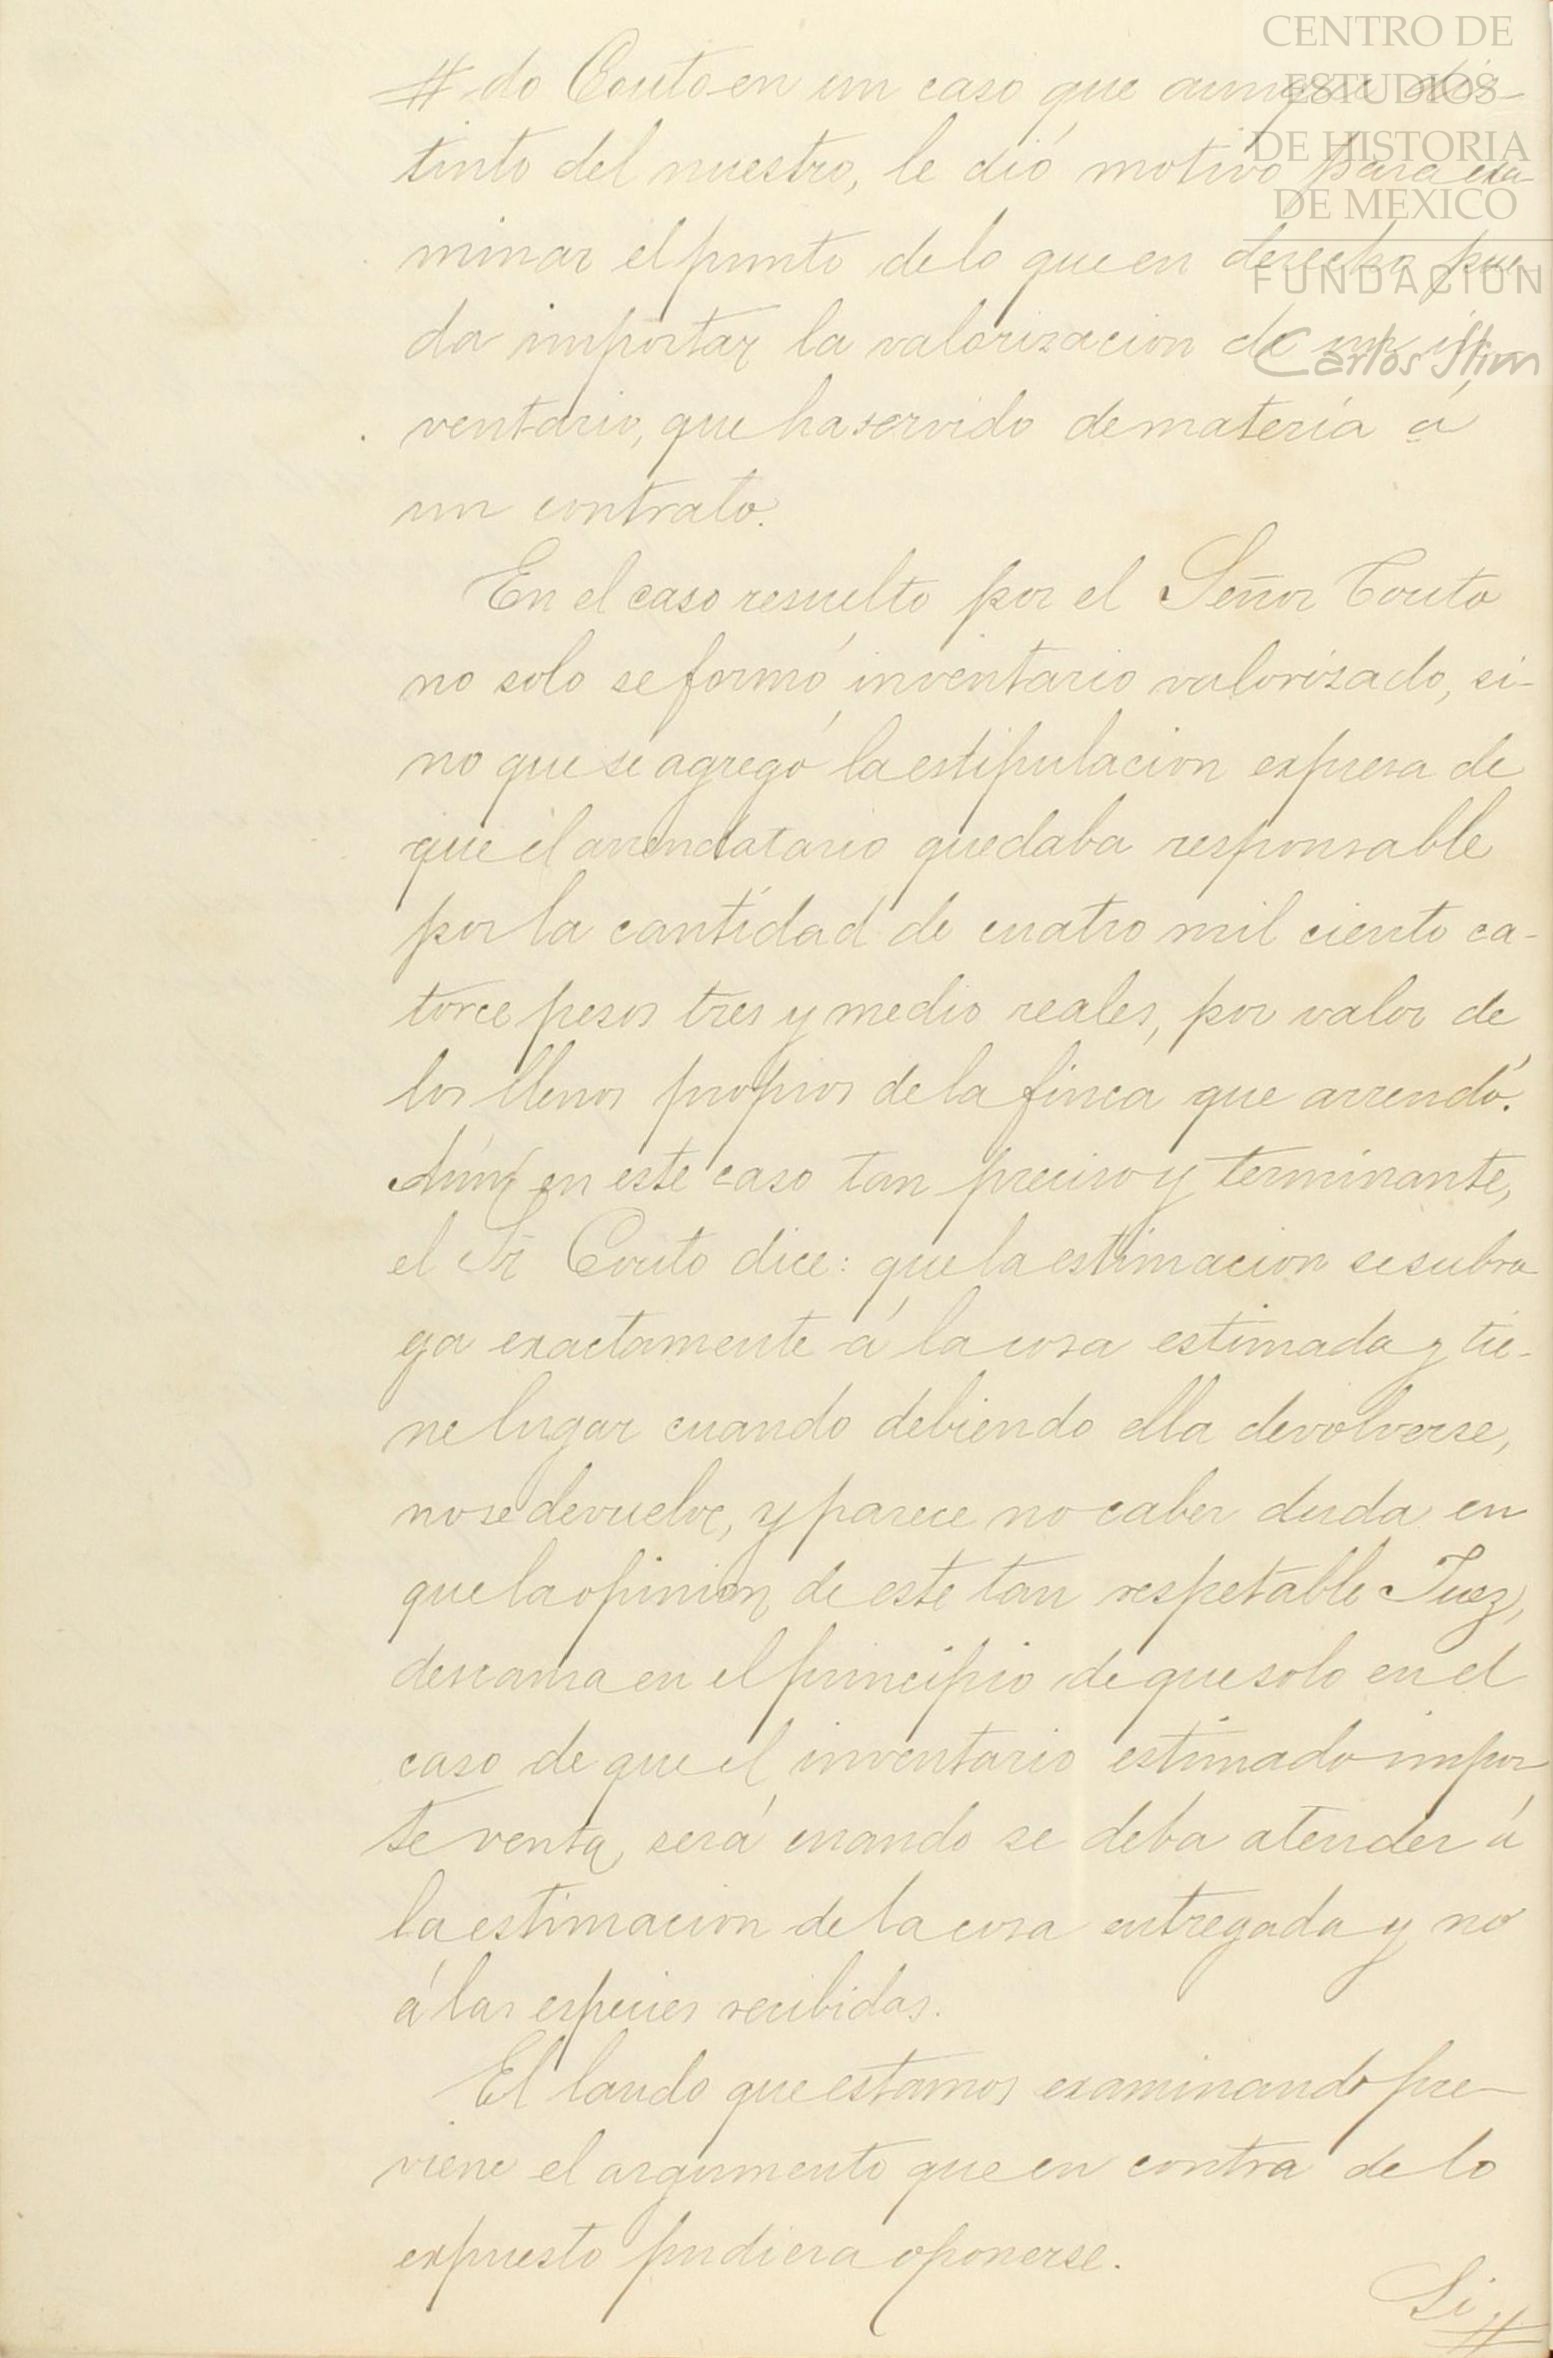 CENTRO DE
ESTUDIOS
DE HISTORIA
DE MEXICO
FUNDACIÓN
Carlos Slim
do Couto en un caso que aunque dis-
tinto del nuestro, le dió motivo para exa-
minar el punto de lo que en derecho pue
da importar la valorizacion de un in
ventario, que ha servido de materia á
un contrato.
En el caso resuelto por el Señor Couto
no solo se formó inventario valorizado, si-
no que se agregó la estipulacion expresa de
que el arrendatario quedaba responsable
por la cantidad de cuatro mil ciento ca-
torce pesos tres y medio reales, por valor de
los llenos propios de la finca que arrendó.
Aún en este caso tan preciso y terminante,
el Sr Couto dice: que la estimacion se subro
ga exactamente á la cosa estimada y tie-
ne lugar cuando debiendo ella devolverse,
no se devuelve, y parece no caber duda en
que la opinion de este tan respetable Juez,
descansa en el principio de que solo en el
caso de que el inventario estimado impor
te venta, será cuando se deba atender á
la estimacion de la cosa entregada y no
á las especies recibidas.
El laudo que estamos examinando pre-
viene el argumento que en contra de lo
expuesto pudiera oponerse.
Si